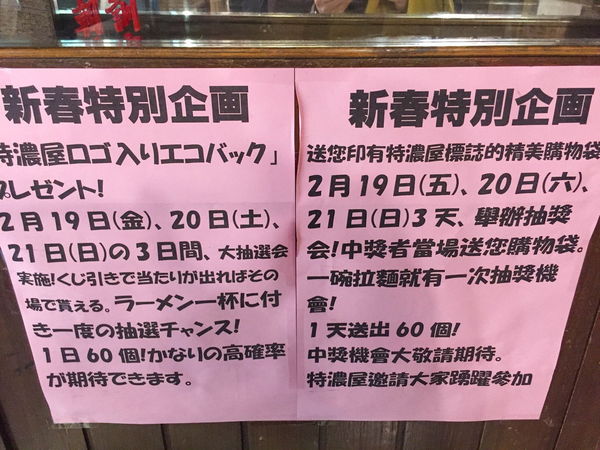 新春特別企画
特濃屋ロゴ入りエコバック」
プレゼント!
2月19日(金)、20日(土)、
21日(日)の3日間、大抽選会
実施!くじ引きで当たりが出ればその
場で貰える。ラーメン一杯に付
き一度の抽選チャンス!
1日60個!かなりの高確率
が期待できます。
新春特別企画
送您印有特濃屋標誌的精美購物袋
2月19日(五)、20日(六)、
21日(日)3天、舉辦抽獎
會!中獎者當場送您購物袋。
一碗拉麵就有一次抽獎機
會!
1天送出60個!
中獎機會大敬請期待。
特濃屋邀請大家踴躍參加